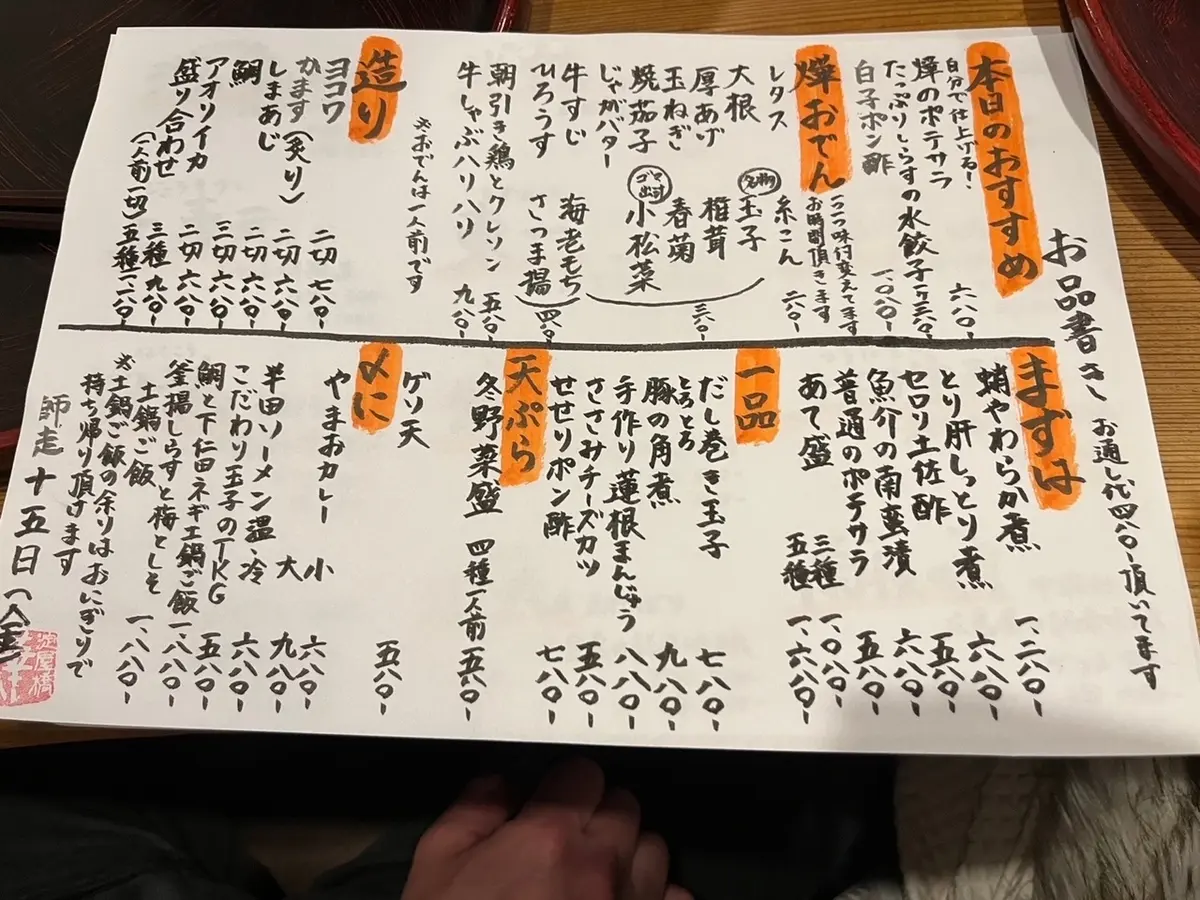 お品書き
お通し代四八〇-頂いてます
本日のおすすめ
自分で仕上げる!
燁のポテサラ 六八〇-
たっぷりしらすの水餃子 二ケ三六〇-
白子ポン酢 一、〇八〇-
燁おでん
一つ一つ味付変えてます
お時間頂きます
レタス 糸こん 二六〇-
大根 名物 玉子
厚あげ 椎茸
玉ねぎ 春菊
焼茄子 ゴマ出汁 小松菜
じゃがバター
三六〇-
牛すじ 海老もち
ひろうす さつま揚
四六〇-
朝引き鶏とクレソン 五八〇-
牛しゃぶハリハリ 九八〇-
※おでんは一人前です
造り
ヨコワ 二切 七八〇-
かます(炙り) 二切 六八〇-
しまあじ 二切 六八〇-
鯛 三切 六八〇-
アオリイカ 二切 六八〇-
盛り合わせ 三種 九八〇-
(一人前一切) 五種 一、六八〇-
まずは
蛸やわらか煮 一、二八〇-
とり肝しっとり煮 六八〇-
セロリ土佐酢 五八〇-
魚介の南蛮漬 六八〇-
普通のポテサラ 五八〇-
あて盛 三種 一、〇八〇-
五種 一、六八〇-
一品
だし巻き玉子 七八〇-
とろとろ
豚の角煮 九八〇-
手作り蓮根まんじゅう 八八〇-
ささみチーズカツ 五八〇-
せせりポン酢 七八〇-
天ぷら
冬野菜盛 四種一人前 五八〇-
ゲソ天 五八〇-
〆に
やまおカレー 小 六八〇-
大 九八〇-
半田ソーメン温・冷 六八〇-
こだわり玉子のTKG 五八〇-
鯛と下仁田ネギ土鍋ご飯 一、八八〇-
釜揚しらすと梅としそ
土鍋ご飯 一、八八〇-
※土鍋ご飯の余りはおにぎりで
持ち帰り頂けます
師走十五日(金)
淀屋橋